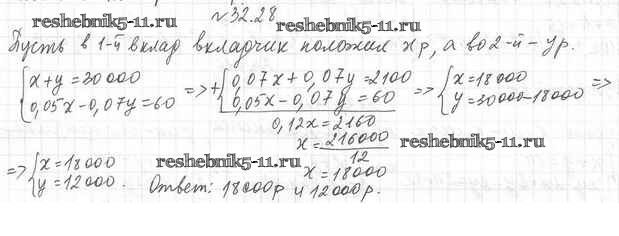 №32.28
reshebnik5-11.ru
reshebnik5-11.ru
Пусть в 1-й вклад вкладчик положил x р, а во 2-й - y р.
{x+y=30000 0,05x-0,07y=60 => +{0,07x+0,07y=2100 0,05x-0,07y=60 => {x=18000 y=30000-18000 =>
0,12x=2160
x=216000/12
reshebnik5-11.ru
x=18000
=> {x=18000 y=12000.
reshebnik5-11.ru
Ответ: 18000р и 12000р.